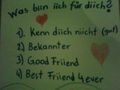 Was bin iich für diich?
1). Kenn diich nicht (gut)
2) Bekannter
3) Good Friiend
4) Best Friiend 4ever